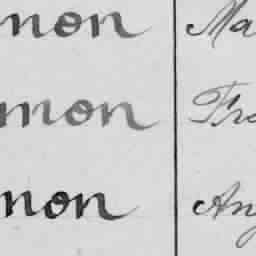 mon Ma
mon Fra
mon An